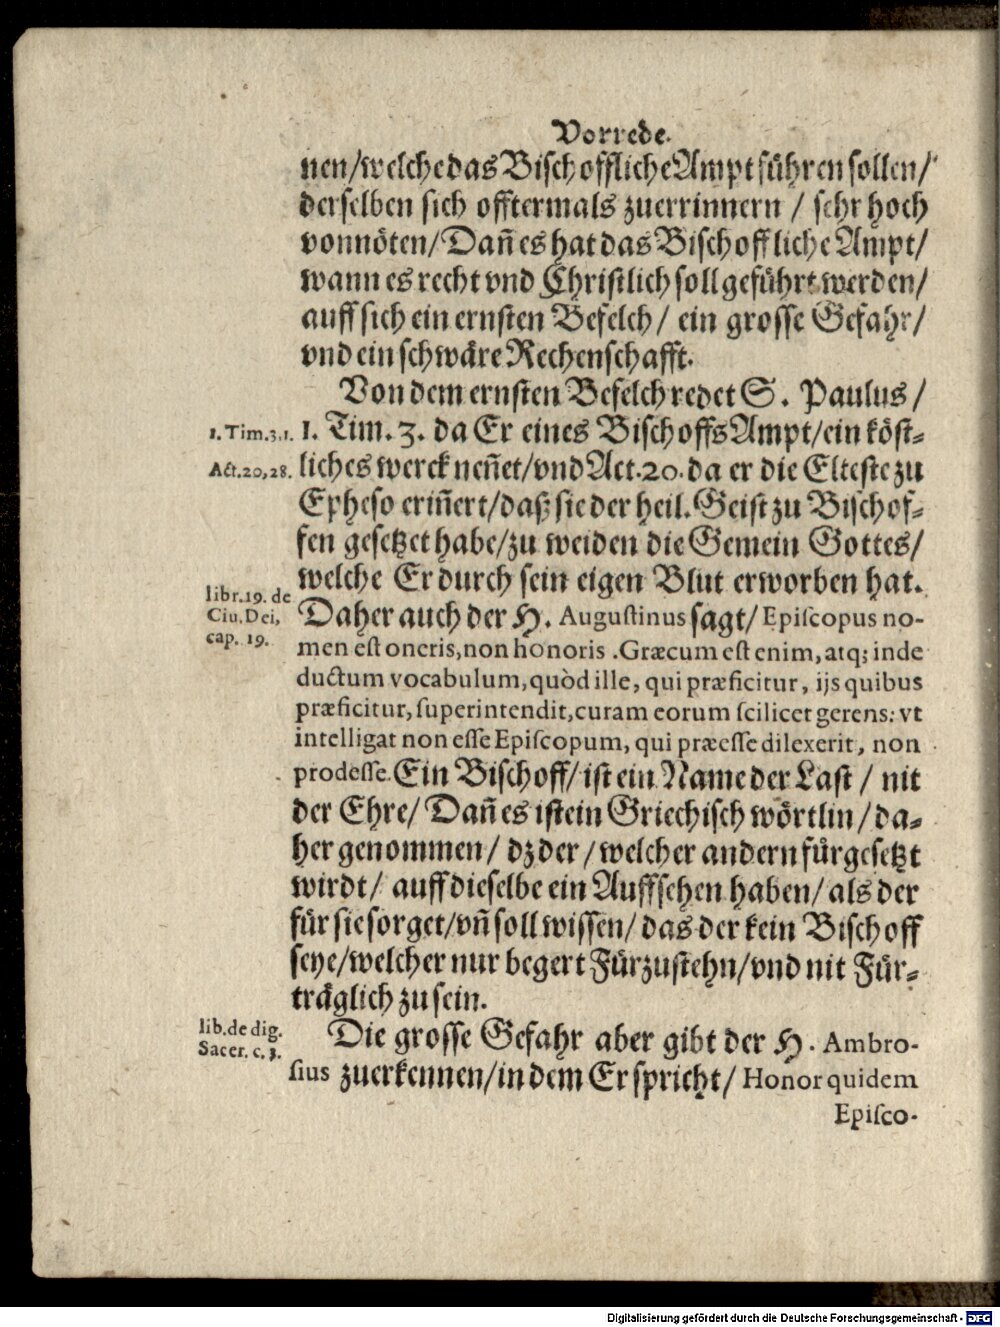 Vorrede.
nen/welche das Bischoffliche Ampt führen sollen/
derselben sich offtermals zuerrinnern / sehr hoch
vonnöten/Dañ es hat das Bischoffliche Ampt/
wann es recht vnd Christlich soll geführt werden/
auff sich ein ernsten Befelch/ ein grosse Gefahr/
vnd ein schwäre Rechenschafft.
Von dem ernsten Befelch redet S. Paulus/
1. Tim.3.1.
1. Tim. 3. da Er eines Bischoffs Ampt/ein köst-
Act.20,28.
liches werck neñet/vnd Act.20. da er die Elteste zu
Epheso eriñert/daß sie der heil. Geist zu Bischof-
fen gesetzet habe/zu weiden die Gemein Gottes/
welche Er durch sein eigen Blut erworben hat.
libr.19. de
Ciu. Dei,
cap. 19.
Daher auch der H. Auguſtinus sagt/ Epiſcopus no-
men eſt oneris, non honoris .Græcum eſt enim, atq; inde
ductum vocabulum, quòd ille, qui præficitur, ijs quibus
præficitur, ſuperintendit, curam eorum ſcilicet gerens: vt
intelligat non eſſe Epiſcopum, qui præeſſe dilexerit, non
prodeſſe. Ein Bischoff/ ist ein Name der Last / nit
der Ehre/ Dañ es ist ein Griechisch wörtlin/ da-
her genommen/ dz der/welcher andern fürgesetzt
wirdt/ auff dieselbe ein Auffsehen haben/ als der
für sie sorget/vñ soll wissen/ das der kein Bischoff
seye/welcher nur begert Fürzustehn/vnd nit Für-
träglich zu sein.
lib. de dig.
Sacer. c. 3.
Die grosse Gefahr aber gibt der H. Ambro-
ſius zuerkennen/in dem Er spricht/ Honor quidem
Epiſco-
Digitalisierung gefördert durch die Deutsche Forschungsgemeinschaft - DFG